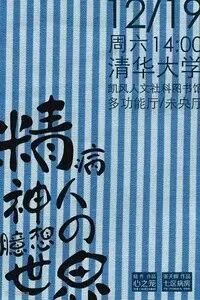 12/19
周六14:00
清华大学
凯风人文社科图书馆
多功能厅/未央厅
精神
病人の
臆想
世界
作品
作品
七区病房